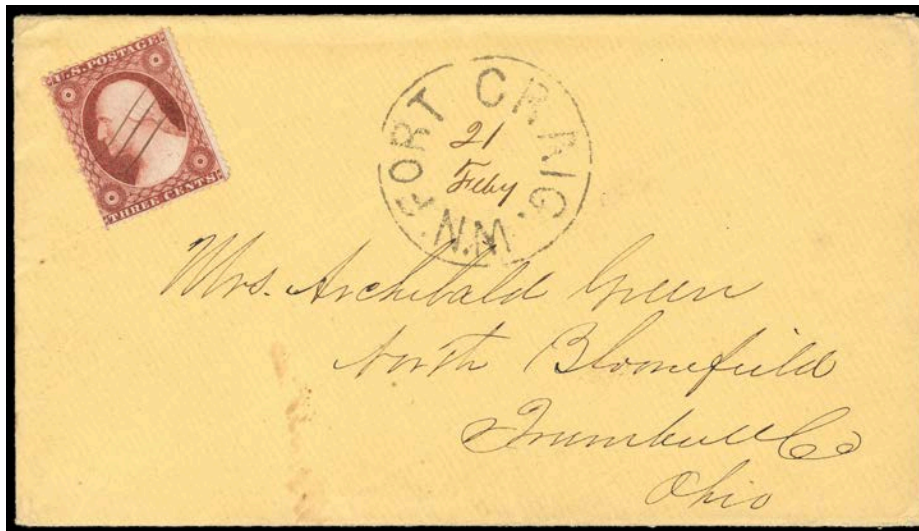 U.S. POSTAGE
THREE CENTS
FORT CRAIG. N.M.
21
Feby
Mrs. Archibald Green
North Bloomfield
Trumbull Co
Ohio